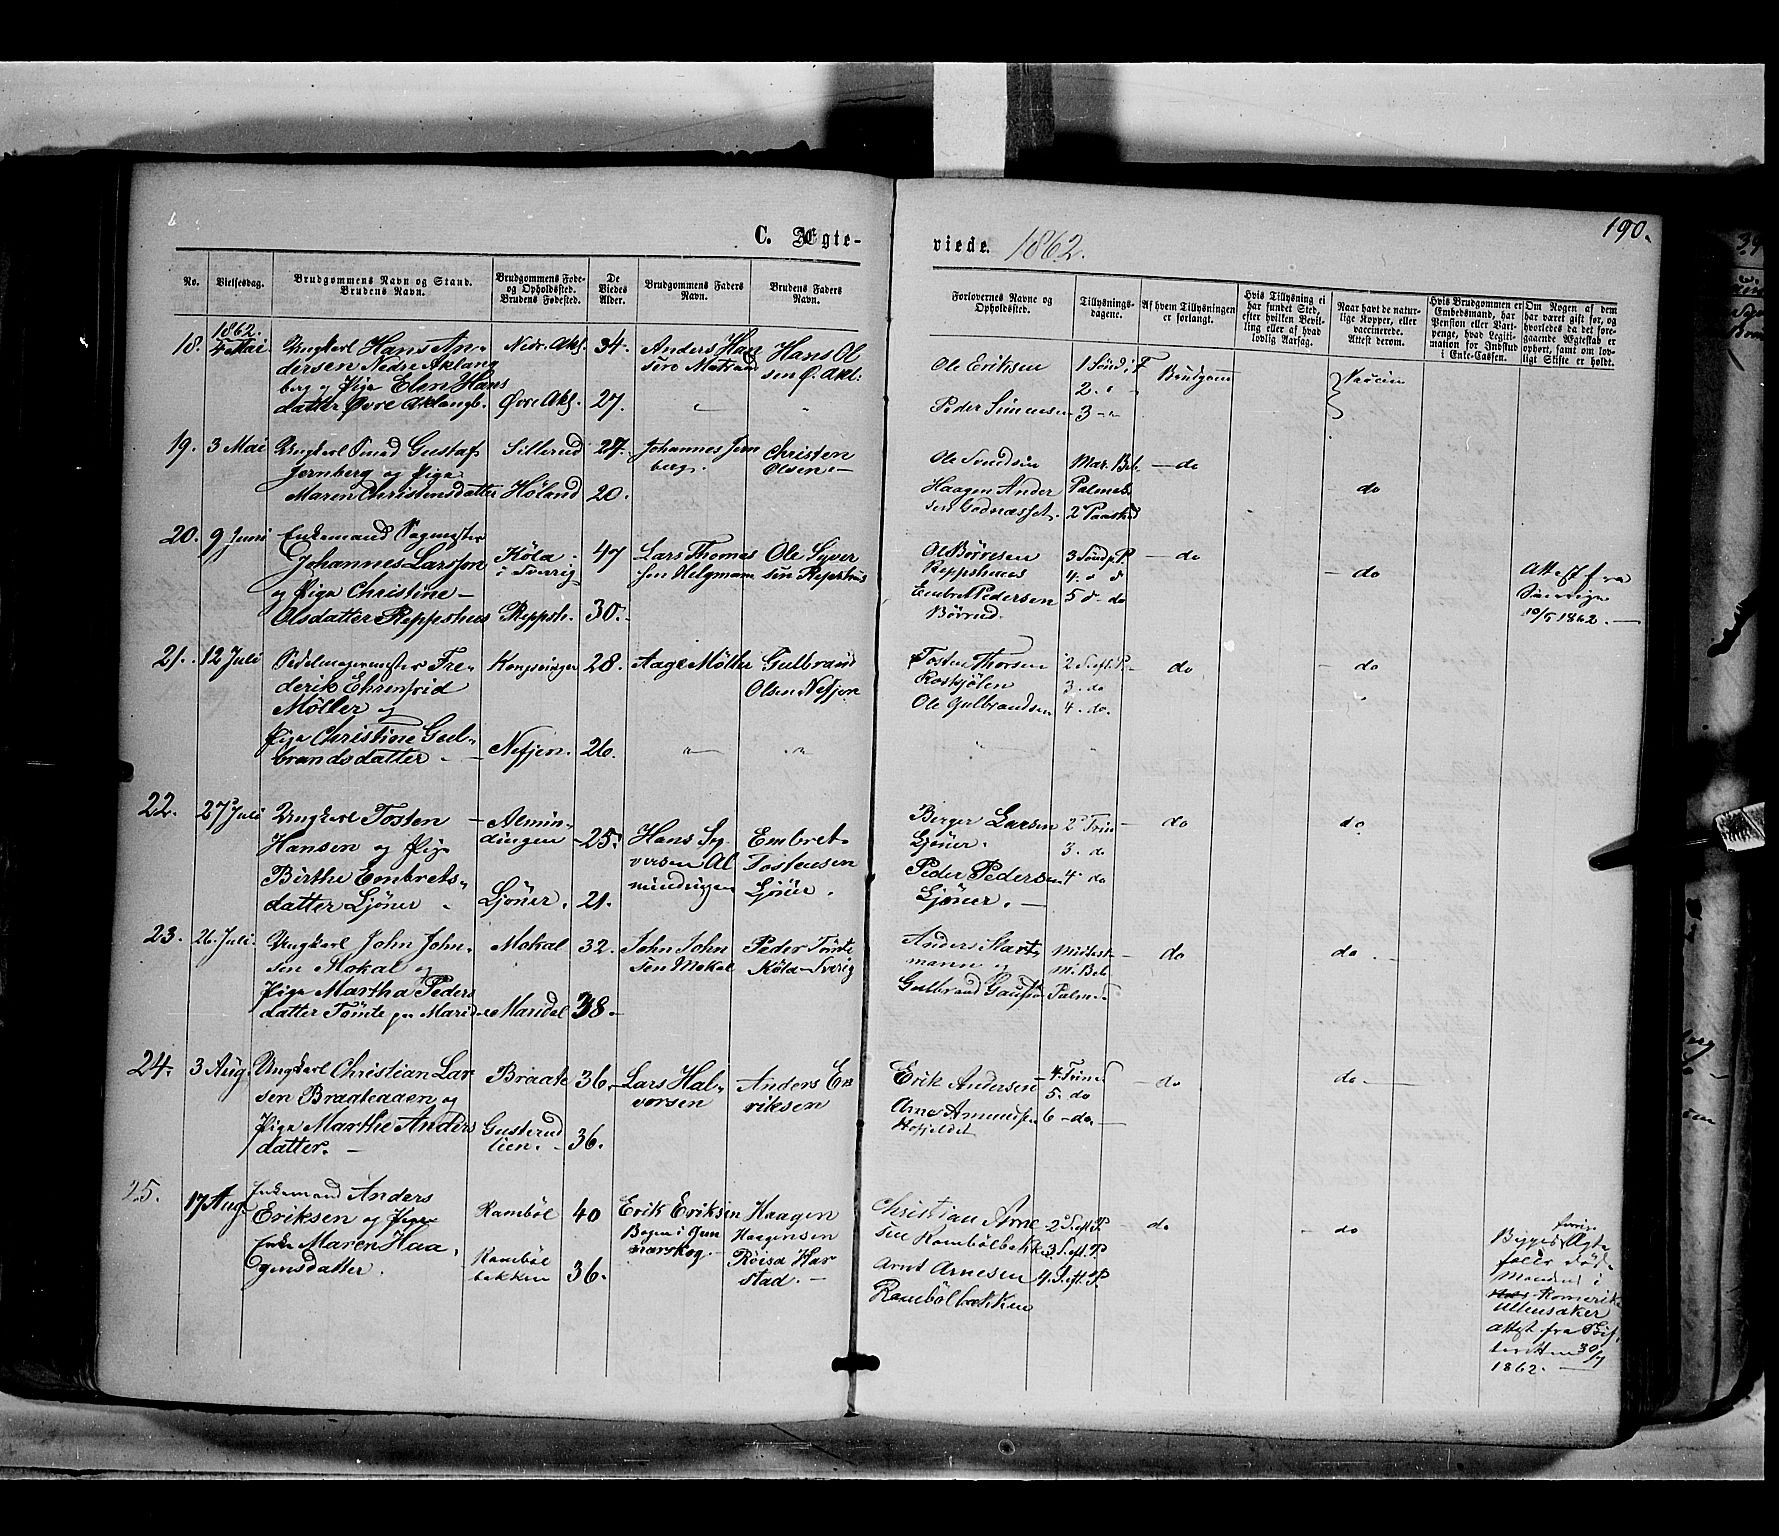 190.
C. Ægte-
viede. 1862.
No.
Vielsesdag.
Brudgommens Navn og Stand.
Brudens Navn.
Brudgommens Føde-
og Opholdssted.
Brudens Fødested.
De
Viedes
Alder.
Brudgommens Faders
Navn.
Brudens Faders
Navn.
Forlovernes Navne og
Opholdssted.
Tillysnings-
dagene.
Af hvem Tillysningen
er forlangt.
Hvis Tillysning ei
har fundet Sted,
efter hvilken Bevil-
ling eller af hvad
lovlig Aarsag.
Naar havt de natur-
lige Kopper, eller
vaccinerede.
Attest derom.
Hvis Brudgommen er
Embedsmand, har
Pension eller Vart-
penge, hvad Legiti-
mation for Indskud
i Enke-Cassen.
Om Nogen af dem
har været gift før, og
hvorledes da det fore-
gaaende Ægteskab er
ophørt, samt om lov-
ligt Skifte er holdt.
1862.
18. 4 Mai Ungkarl Hans An-
dersen Nedre Aklang
berg og Pige Elen Hans
datter Øvre Aklangb.
Nedr. Akl.
Øvre Akl.
34.
27.
Anders Han
sen
Hans Ol
sen Ø. Akl.
Ole Eriksen
Peder Simensen
1 Sønd i F
2. "
3 - "
Brudgom
Vaccin
19. 3 Mai Ungkarl Smed Gustaf
Jernberg og Pige
Maren Christensdatter
Sillerud
Høland
27.
20.
Johannes Jern
berg.
Christen
Olsen -
Ole
Haagen Ander
sen
Mar. Beb.
Palmes.
2
- do
- do
20. 9 Juni Enkemand
Johannes Larsson
og Pige Christine -
Olsdatter Reppshus
Köla
i Sverig
Reppsh.
47
30.
Lars Thomes
sen Helgman
Ole Syver
sen Reppshus
Ole Børresen
Reppshuus
Embret Pedersen
Børrud.
3 Sønd. p. P.
4. " d
5 d. do
- do
- do
Attest fra
Sverige
10/5 1862. -
21. 12 Juli Sadelmagermester Fre-
derik Ehrenfrid
Möller og
Pige Christine Gul-
brandsdatter -
Kongsvinger
Nefjen.
28.
26.
Aage Möller
Gulbrand
Olsen Nefjen
Tosten Thorsen
Roskjølen
Ole Gulbrandsen
2 S. eft. P.
3. do
4. do.
- do
- do
22. 27 Juli Ungkarl Tosten
Hansen og Pige
Birthe Embrets-
datter Ljöner
Almin-
dingen
Ljöner.
25.
21.
Hans Sy
versen Al
mindingen
Embret
Tostensen
Ljöner.
Berger Larsen
Ljöner.
Peder Pedersen
Ljöner. -
2 Trin
3. do
4. do
- do
do
23. 26. Juli. Ungkarl John John-
sen Mokal og
Pige Martha Peders
datter Tömte
Mokal
Mandel
32.
38.
John John
sen Mokal
Peder Tömte
Köla - Sverig
Anders Mart
mann og
Gulbrand
M. Beb.
Palm
- do
do. -
24. 3 Aug. Ungkarl Christian Lar
sen Braateaaen og
Pige Marthe Anders
datter. -
Braate
Gusterud
lien.
36.
36.
Lars Hal-
vorsen
Anders E
riksen
Erik Andersen
Arne Amundsen
4. Trin
5. do
6 - do -
- do
do -
25. 17 Aug. Enkemand Anders
Eriksen og Pige
Enke Maren Haa
gensdatter.
Rambøl
Rambøl
bækken
40
36.
Erik Eriksen
Bogen i Gun
narskog. -
Haagen
Haagensen
Röisa Har
stad. -
Christian Arne
sen Rambölbekken
Arne Arnesen
Rambölbækken
2 S. eft. P
3 S. eft. P
4. S. eft. P
- do
- do
Begges forrige Ægte
fæller døde
Manden i
Romerike
Ullensaker
Attest fra
30/7
1862. -